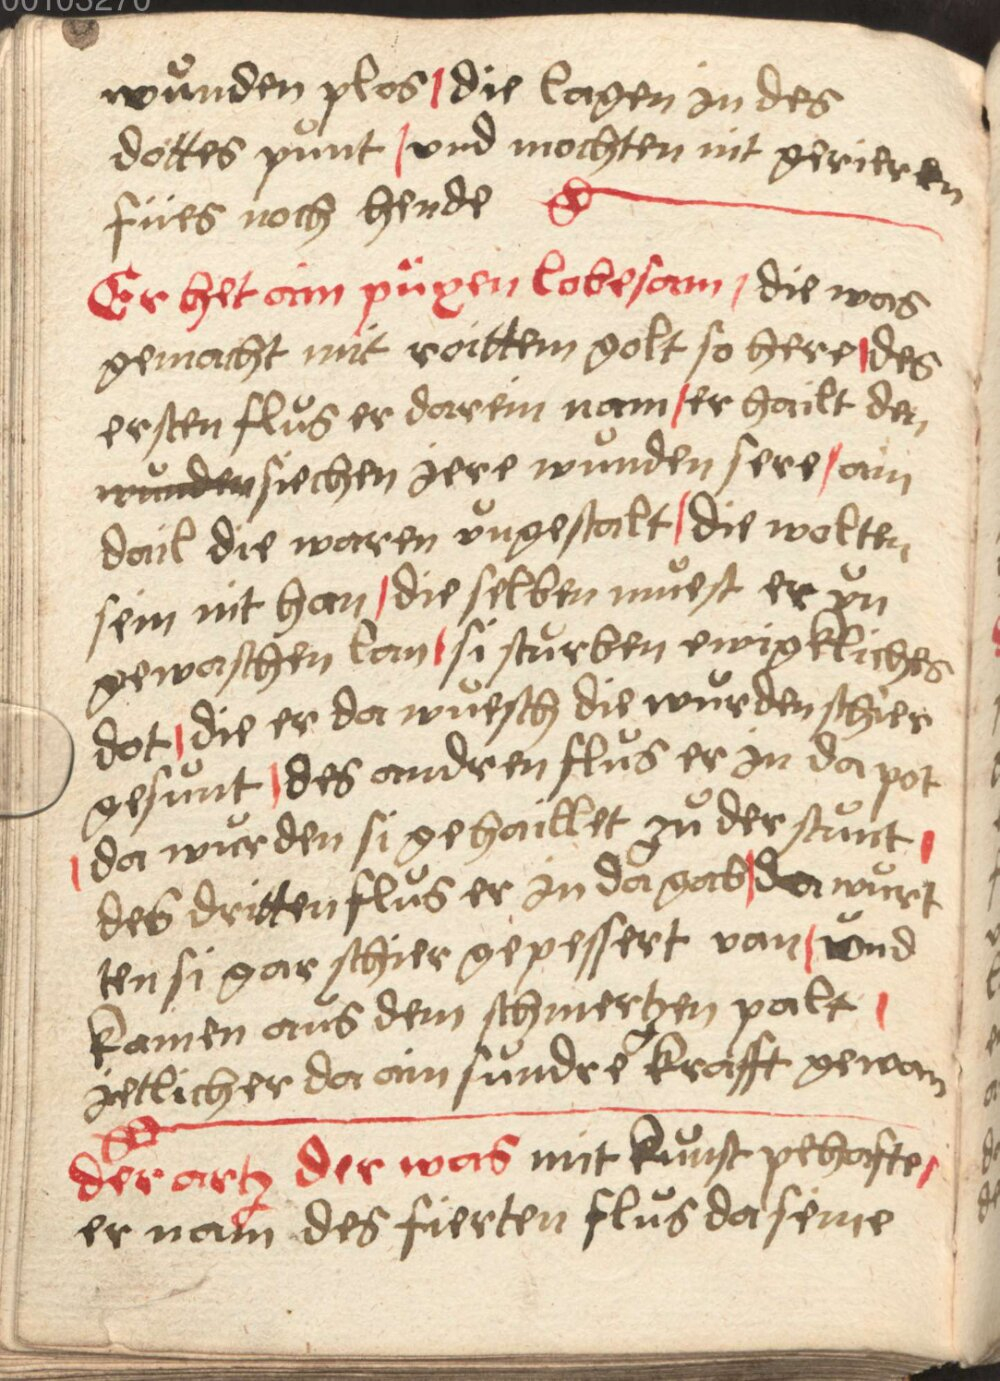 00103270
wůnden plos / die lagen in des
dottes půnt / vnd mochten nit gerieren
fües noch hende
Er het ain püxen lobesam / die was
gemacht mit roittem golt so here / des
ersten flůs er darein nam / er hailt den
wůnden siechen jere wůnden sere / ain
dail die waren ůngestalt / die wolten
sein nit han / die selben můest er ůn
gewaschen lan / si stůrben ewigkliches
dot / die er da wůesch die wůrden schier
gesůnt / des andren flůs er in da pot
/ da wůrden si gehaillet zů der stůnt /
des dritten flůs er in da gab / da wůrt
ten si gar schier gepessert van / vnd
kamen aůs dem schmertzen palt /
jetlicher da ain sůndre krafft gewan
der artz der was mit kůnst pehafte /
er nam des fierten flůs da seine